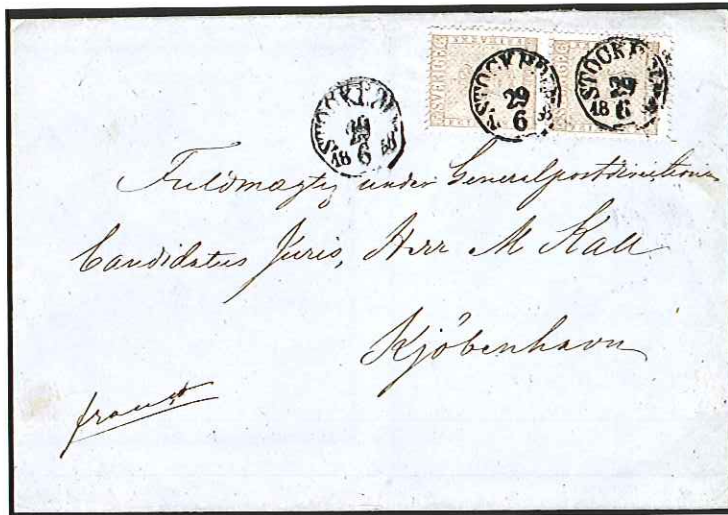 SVERIGE
STOCKHOLM
29
6
18
STOCKHOLM
29
6
STOCKHOLM
29
18 6
Fuldmægtig under Generalpostdirectionen
Candidatus Juris, Herr M Kall
Kjöbenhavn
franco